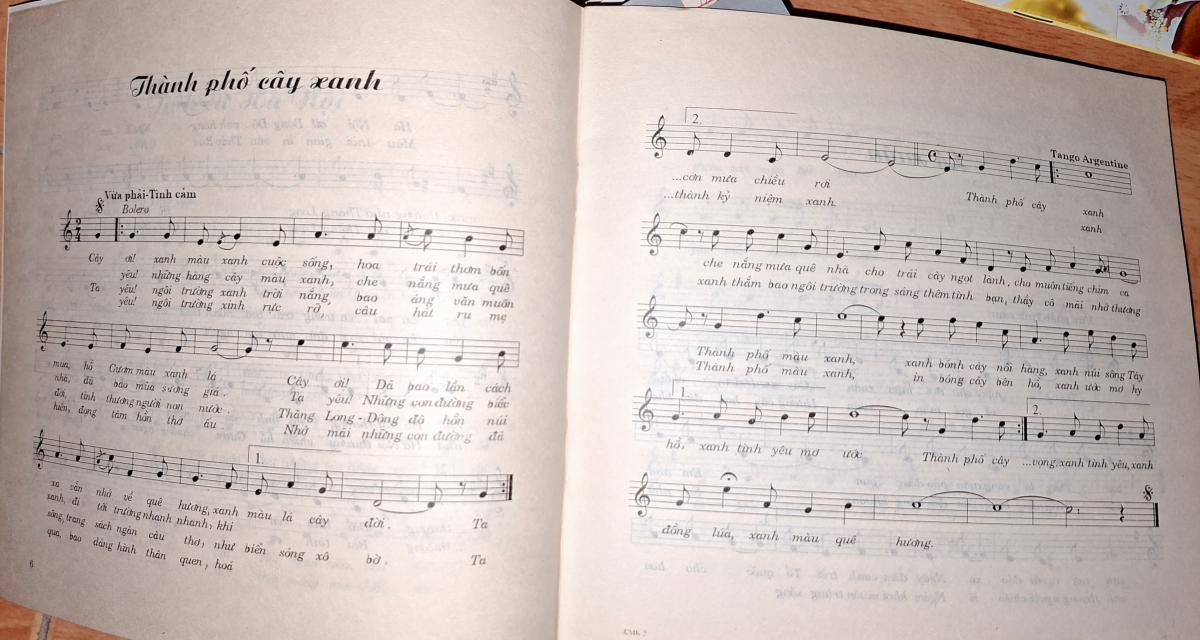 Thành phố cây xanh
Vừa phải-Tình cảm
Bolero
Cây ơi! xanh màu xanh cuộc sống, hoa trái thơm bốn
yêu! những hàng cây màu xanh, che nắng mưa quê
Ta yêu! ngôi trường xanh trời nắng, bao áng văn muôn
yêu! ngôi trường xinh rực rỡ câu hát ru mẹ
mùa, hồ Gươm màu xanh lá Cây ơi! Đã bao lần cách
nhà, dù bão mùa sương giá. Ta yêu! Những con đường biếc
đời, tình thương người non nước. Thăng Long - Động độ hồn núi
hiền, đong tâm hồn thơ ấu Nhớ mãi những con đường đã
1.
xa vẫn nhớ về quê hương, xanh màu lá cây đời. Ta
xanh, đi tới trường nhanh nhanh, khi
sông, trang sách ngàn câu thơ, như biển sóng xô bờ. Ta
qua, bao dáng hình thân quen, hoá
6
2.
Tango Argentine
...cơn mưa chiều rơi Thành phố cây xanh
...thành kỷ niệm xanh. xanh
che nắng mưa quê nhà cho trái cây ngọt lành, cho muôn tiếng chim ca
xanh thắm bao ngôi trường trong sáng thêm tình bạn, thầy cô mãi nhớ thương
Thành phố màu xanh, xanh bóng cây nối hàng, xanh núi sông Tây
Thành phố màu xanh, in bóng cây bên hồ, xanh ước mơ hy
1.
2.
hồ, xanh tình yêu mơ ước Thành phố cây ...vọng, xanh tình yêu, xanh
đồng lúa, xanh màu quê hương.